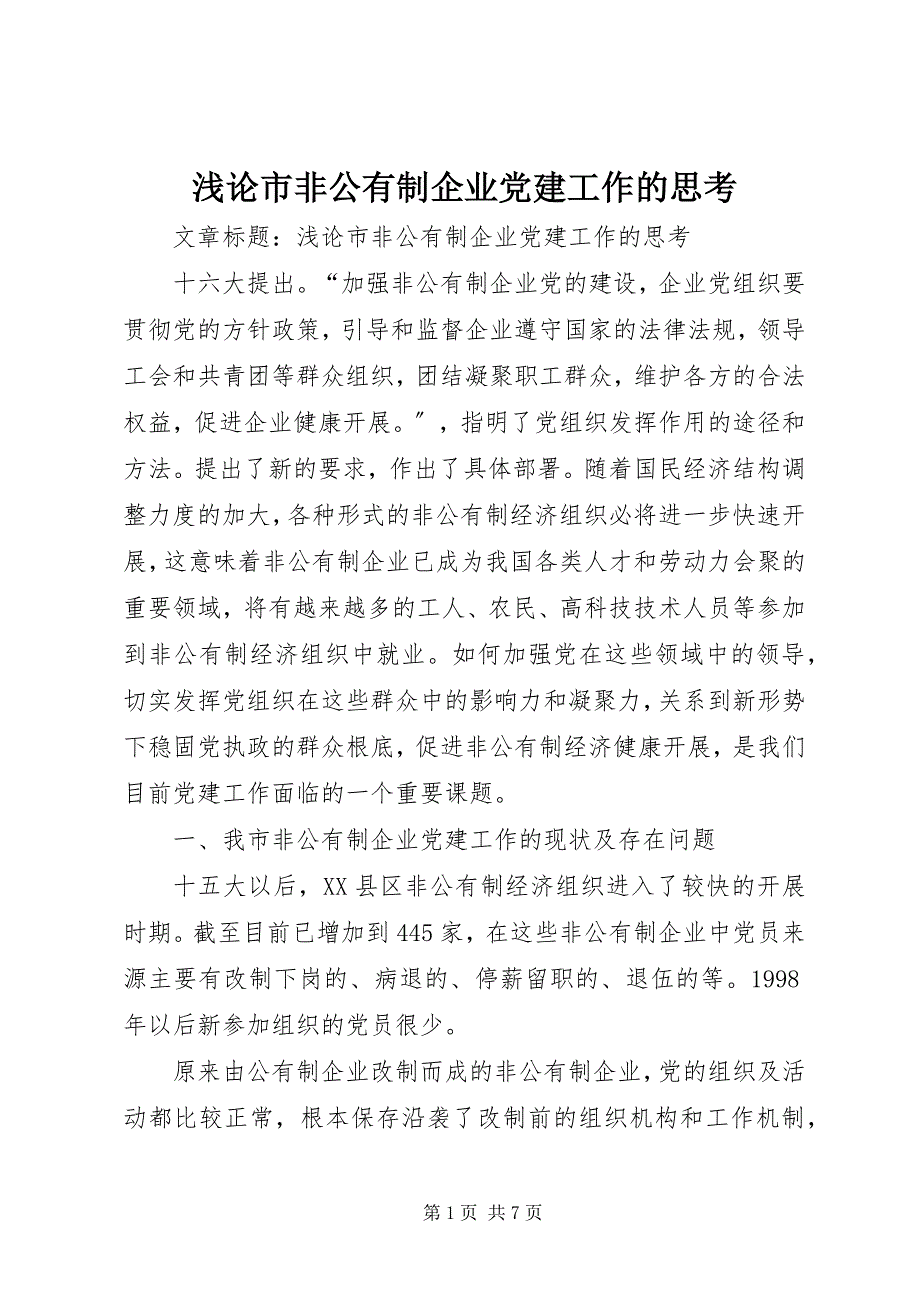 浅论市非公有制企业党建工作的思考
文章标题：浅论市非公有制企业党建工作的思考
十六大提出。“加强非公有制企业党的建设，企业党组织要
贯彻党的方针政策，引导和监督企业遵守国家的法律法规，领导
工会和共青团等群众组织，团结凝聚职工群众，维护各方的合法
权益，促进企业健康开展。〞，指明了党组织发挥作用的途径和
方法。提出了新的要求，作出了具体部署。随着国民经济结构调
整力度的加大，各种形式的非公有制经济组织必将进一步快速开
展，这意味着非公有制企业已成为我国各类人才和劳动力会聚的
重要领域，将有越来越多的工人、农民、高科技技术人员等参加
到非公有制经济组织中就业。如何加强党在这些领域中的领导，
切实发挥党组织在这些群众中的影响力和凝聚力，关系到新形势
下稳固党执政的群众根底，促进非公有制经济健康开展，是我们
目前党建工作面临的一个重要课题。
一、我市非公有制企业党建工作的现状及存在问题
十五大以后，XX 县区非公有制经济组织进入了较快的开展
时期。截至目前已增加到 445 家，在这些非公有制企业中党员来
源主要有改制下岗的、病退的、停薪留职的、退伍的等。1998
年以后新参加组织的党员很少。
原来由公有制企业改制而成的非公有制企业，党的组织及活
动都比较正常，根本保存沿袭了改制前的组织机构和工作机制，
第 1 页 共 7 页